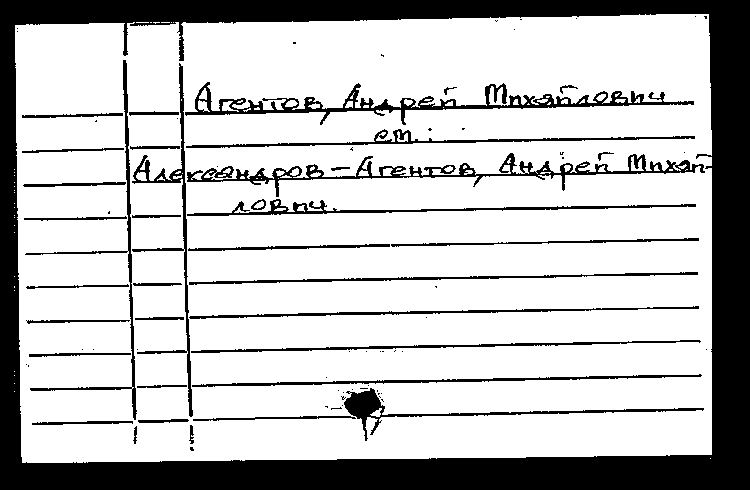 Агентов, Андрей Михайлович
см.:
Александров-Агентов, Андрей Михай-
лович.